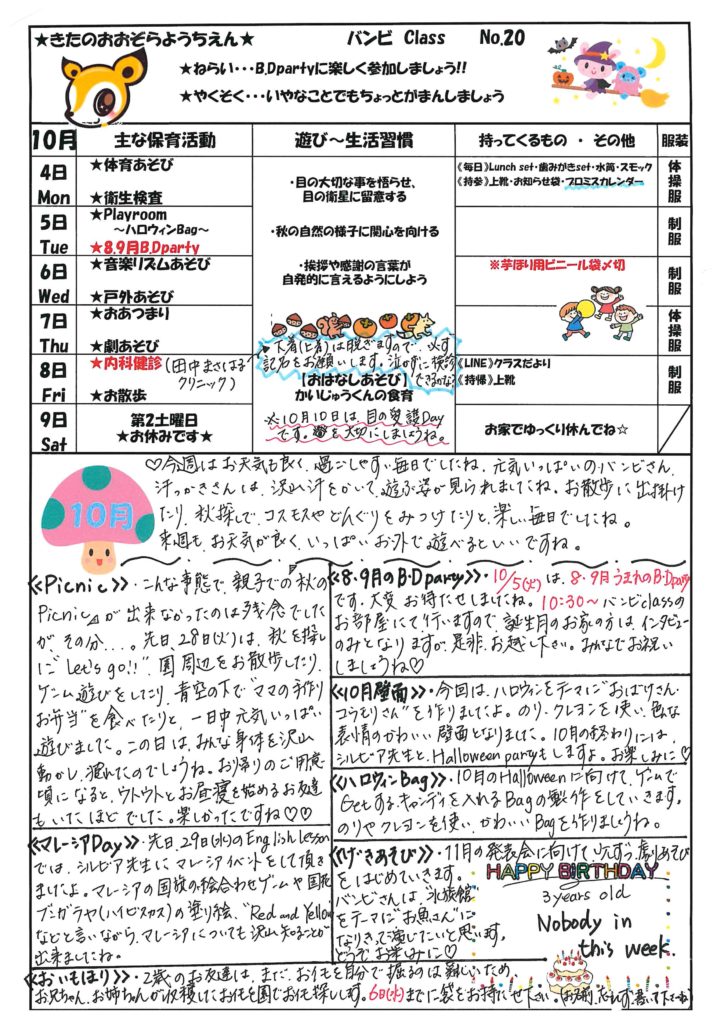 ★きたのおおぞらようちえん★ バンビ Class No.20
★ねらい・・・B.Dpartyに楽しく参加しましょう!!
★やくそく・・・いやなことでもちょっとがまんしましょう
10月 主な保育活動 遊び～生活習慣 持ってくるもの ・ その他 服装
4日 Mon
★体育あそび
★衛生検査
・目の大切な事を悟らせ、
目の衛星に留意する
《毎日》Lunch set・歯みがきset・水筒・スモック
《持参》上靴・お知らせ袋・プロミスカレンダー
体操服
5日 Tue
★Playroom
～ハロウィンBag～
★8.9月B.Dparty
・秋の自然の様子に関心を向ける
制服
6日 Wed
★音楽リズムあそび
★戸外あそび
・挨拶や感謝の言葉が
自発的に言えるようにしよう
※芋ほり用ビニール袋〆切
制服
7日 Thu
★おあつまり
★劇あそび
体操服
8日 Fri
★内科健診(田中まさはる
クリニック)
★お散歩
下着(上着)は脱ぎますので、必ず
記名をお願いします。泣かずに検診
できるかな?
【おはなしあそび】
かいじゅうくんの食育
《LINE》クラスだより
《持帰》上靴
制服
9日 Sat
第2土曜日
★お休みです★
※10月10日は、目の愛護Day
です。目を大切にしましょうね。
お家でゆっくり休んでね☆
10月
♡今週はお天気も良く、過ごしやすい毎日でしたね。元気いっぱいのバンビさん、
汗っかきさんは、沢山汗をかいて遊ぶ姿が見られましたね。お散歩に出掛け
たり、秋探しで、コスモスやどんぐりをみつけたりと、楽しい毎日でしたね。
来週も、お天気が良く、いっぱいお外で遊べるといいですね。
《Picnic》・こんな事態で、親子での秋の
Picnicが出来なかったのは残念でした
が、その分...。先日、28日(火)は、秋を探し
に"Let's go!!"園周辺をお散歩したり、
ゲーム遊びをしたり、青空の下で"ママの手作り
お弁当"を食べたりと、一日中元気いっぱい
遊びました。この日は、みんな身体を沢山
動かし、疲れたのでしょうね。お帰りのご用意
頃になると、ウトウトとお昼寝を始めるお友達
もいたほどでした。楽しかったですね♡♡
《マレーシアDay》・先日、29日(水)のEnglish lesson
では、シルビア先生にマレーシアイベントをして頂き
ましたよ。マレーシアの国旗の絵合わせゲームや国花
ブンガラヤ(ハイビスカス)の塗り絵、"Red and Yellow"
などと言いながら、マレーシアについても沢山知ることが
出来ましたね。
《8.9月のB・Dparty》・10/5(火)は、8・9月うまれのB・Dparty
です。大変お待たせしましたね。10:30～バンビclassの
お部屋にて行いますので、誕生月のお家の方は、インタビュー
のみとなりますが、是非、お越し下さい。みんなでお祝い
しましょうね♡
《10月壁面》・今回は、ハロウィンをテーマに"おばけさん・
コウモリさん"を作りましたよ。のり、クレヨンを使い、色んな
表情のかわいい壁面となりました。10月の終わりには、
シルビア先生と、Halloween partyもしますよ。お楽しみに♡
《ハロウィンBag》・10月のHalloweenに向けて、ゲームで
Getするキャンディを入れるBagの製作をしていきます。
のりやクレヨンを使い、かわいいBagを作りましょうね。
《げきあそび》・11月の発表会に向けて少しずつ、劇あそび
をはじめていきます。
バンビさんは、"水族館"
をテーマに"お魚さん"に
なりきって演じたいと思います。
どうぞお楽しみに♡
HAPPY BIRTHDAY
3 years old
Nobody in
this week.
《おいもほり》・2歳のお友達は、まだ、お芋を自分で掘るのは難しいため、
お兄ちゃん、お姉ちゃんが収穫したお芋を園でお芋探しします。6日(水)までに袋をお持たせ下さい。(お名前、忘れず、書いて下さいね)